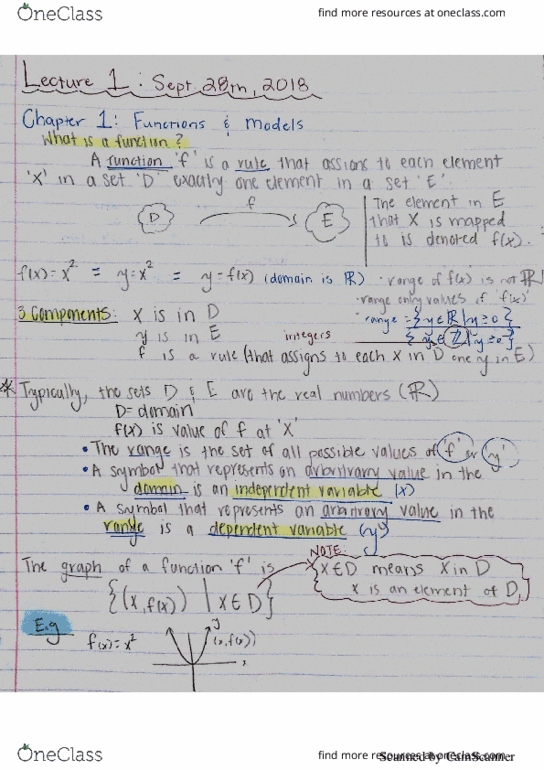 OneClass find more resources at oneclass.com
Lecture 1 : Sept 28th, 2018
Chapter 1: Functions & Models
What is a function?
A function 'f' is a rule that assigns to each element
'x' in a set 'D' exactly one element in a set 'E'.
D f E
The element in E
that X is mapped
to is denoted f(x).
f(x)=x² = y=x² = y=f(x) (domain is ℝ) · range of f(x) is not ℝ!
· range only values if 'f(x)'
3 Components: x is in D · range = {y∈ℝ|y≥0}
y is in E integers {y∈ℤ|y≥0}
f is a rule (that assigns to each x in D one y in E)
* Typically, the sets D & E are the real numbers (ℝ)
D = domain
f(x) is value of f at 'x'
• The range is the set of all possible values of 'f' or 'y'
• A symbol that represents an arbitrary value in the
domain is an independent variable (x)
• A symbol that represents an arbitrary value in the
range is a dependent variable (y)
The graph of a function 'f' is
{(x, f(x)) | x∈D}
NOTE:
x∈D means x in D
x is an element of D
E.g
f(x)=x² y (x, f(x)) x
OneClass find more resources at oneclass.com
Scanned by CamScanner